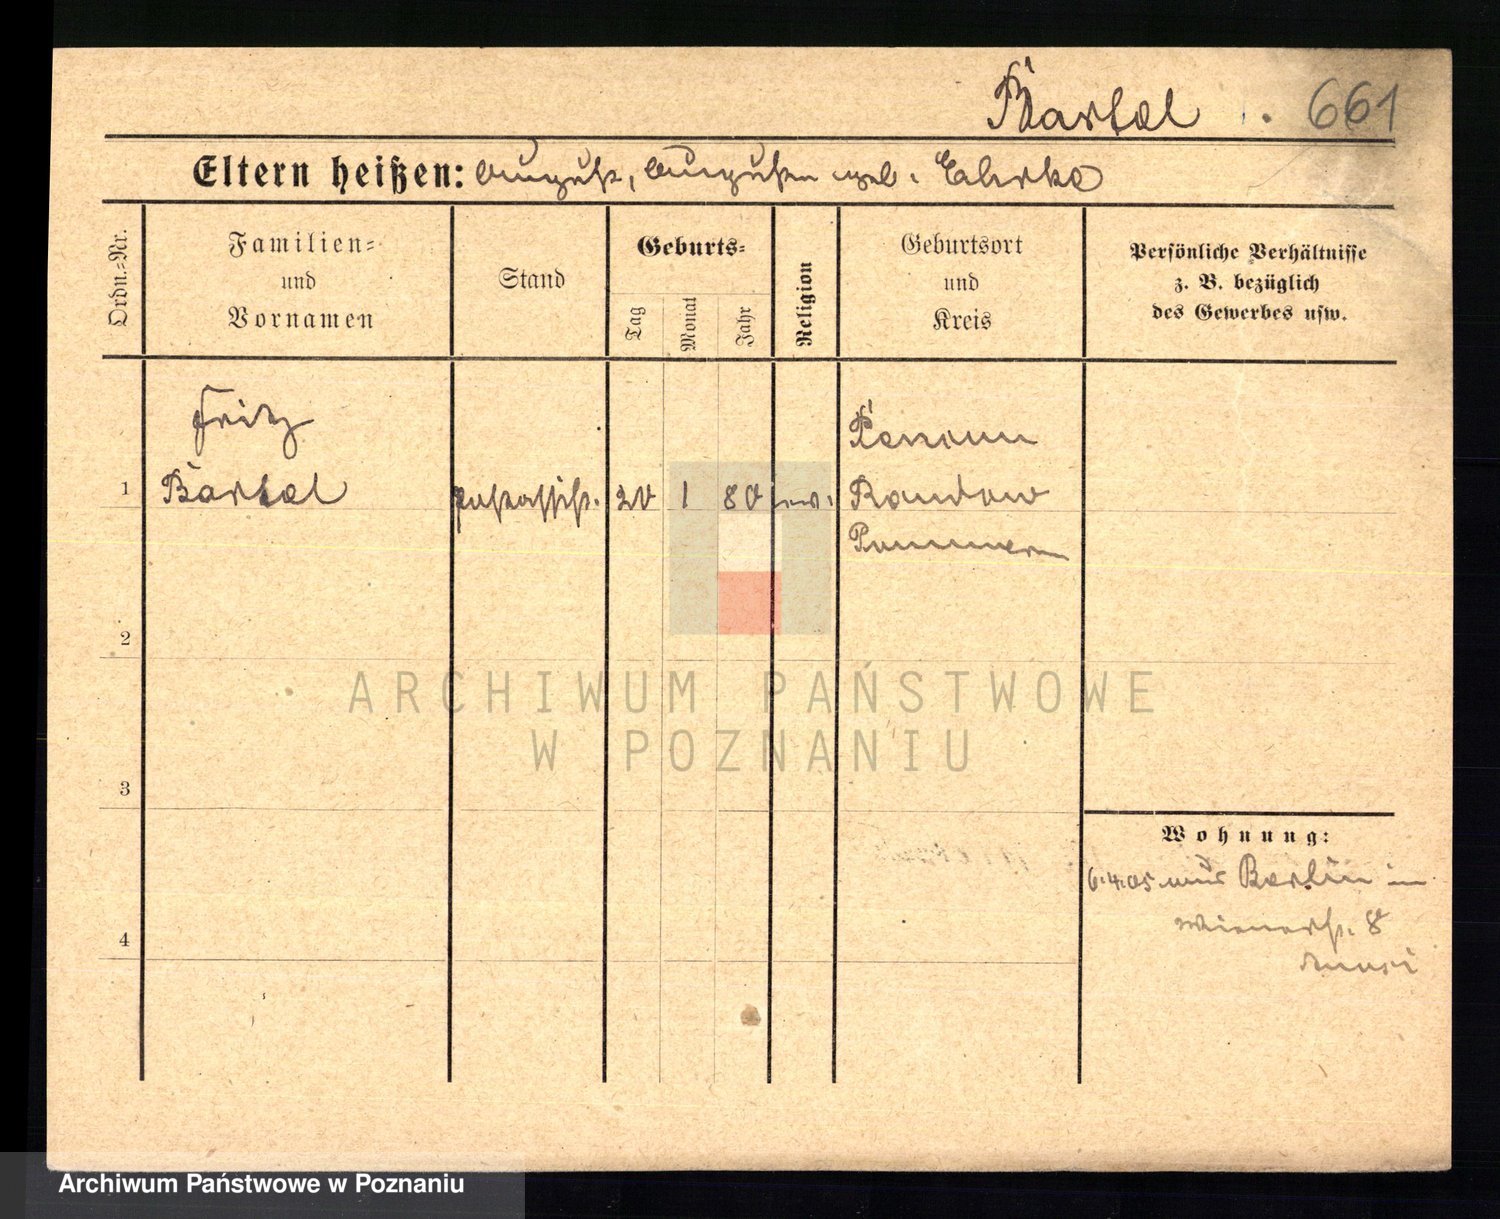 Bartel 661
Eltern heißen: August, Augusten geb. Ehrke
Ordn.=Nr.
Familien=
und
Vornamen
Stand
Geburts=
Tag
Monat
Jahr
Religion
Geburtsort
und
Kreis
Persönliche Verhältnisse
z. B. bezüglich
des Gewerbes usw.
Fritz
1 Bartel Postassist. 20 1 80 ev. Randow
Pommern
2
ARCHIWUM PAŃSTWOWE
W POZNANIU
3
Wohnung:
6.4.05 aus Berlin in
Wienerstr. 8
4
Archiwum Państwowe w Poznaniu